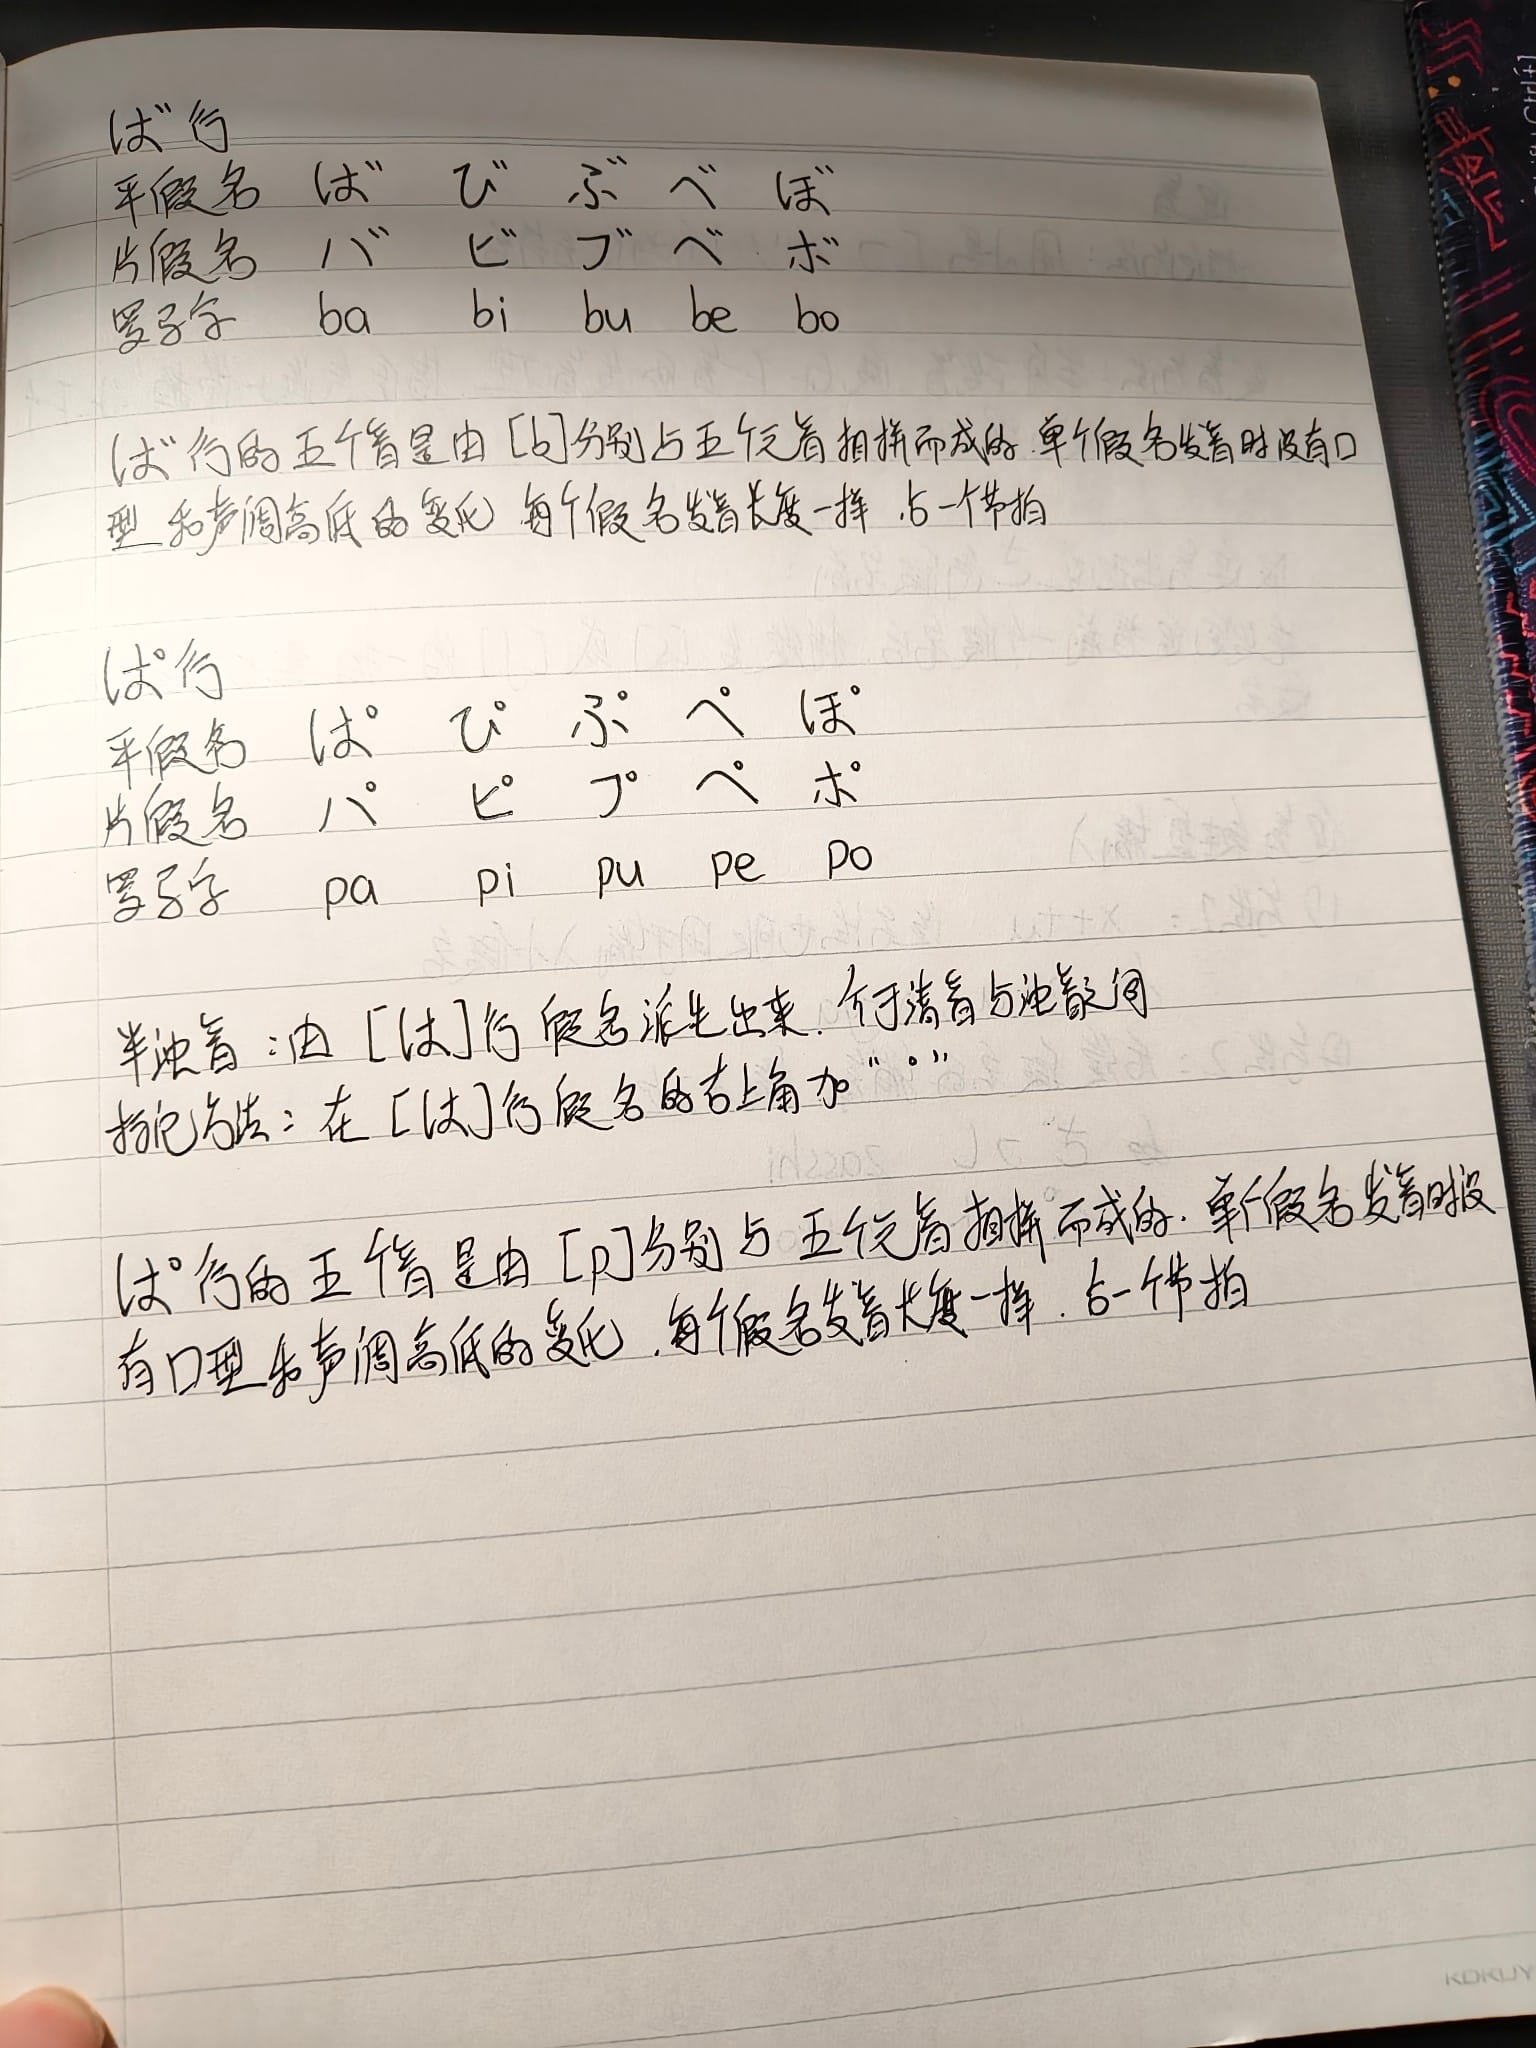 ば行
平假名 ば び ぶ べ ぼ
片假名 バ ビ ブ ベ ボ
罗马字 ba bi bu be bo
ば行的五个音是由[b]分别与五个元音相拼而成的.单个假名发音时没有口
型和声调高低的变化.每个假名发音长度一样.占一个节拍
ぱ行
平假名 ぱ ぴ ぷ ぺ ぽ
片假名 パ ピ プ ペ ポ
罗马字 pa pi pu pe po
半浊音:由[は]行假名派生出来.介于清音与浊音之间
标记方法:在[は]行假名的右上角加“°”
ぱ行的五个音是由[p]分别与五个元音相拼而成的.单个假名发音时没
有口型和声调高低的变化.每个假名发音长度一样.占一个节拍
KOKUY